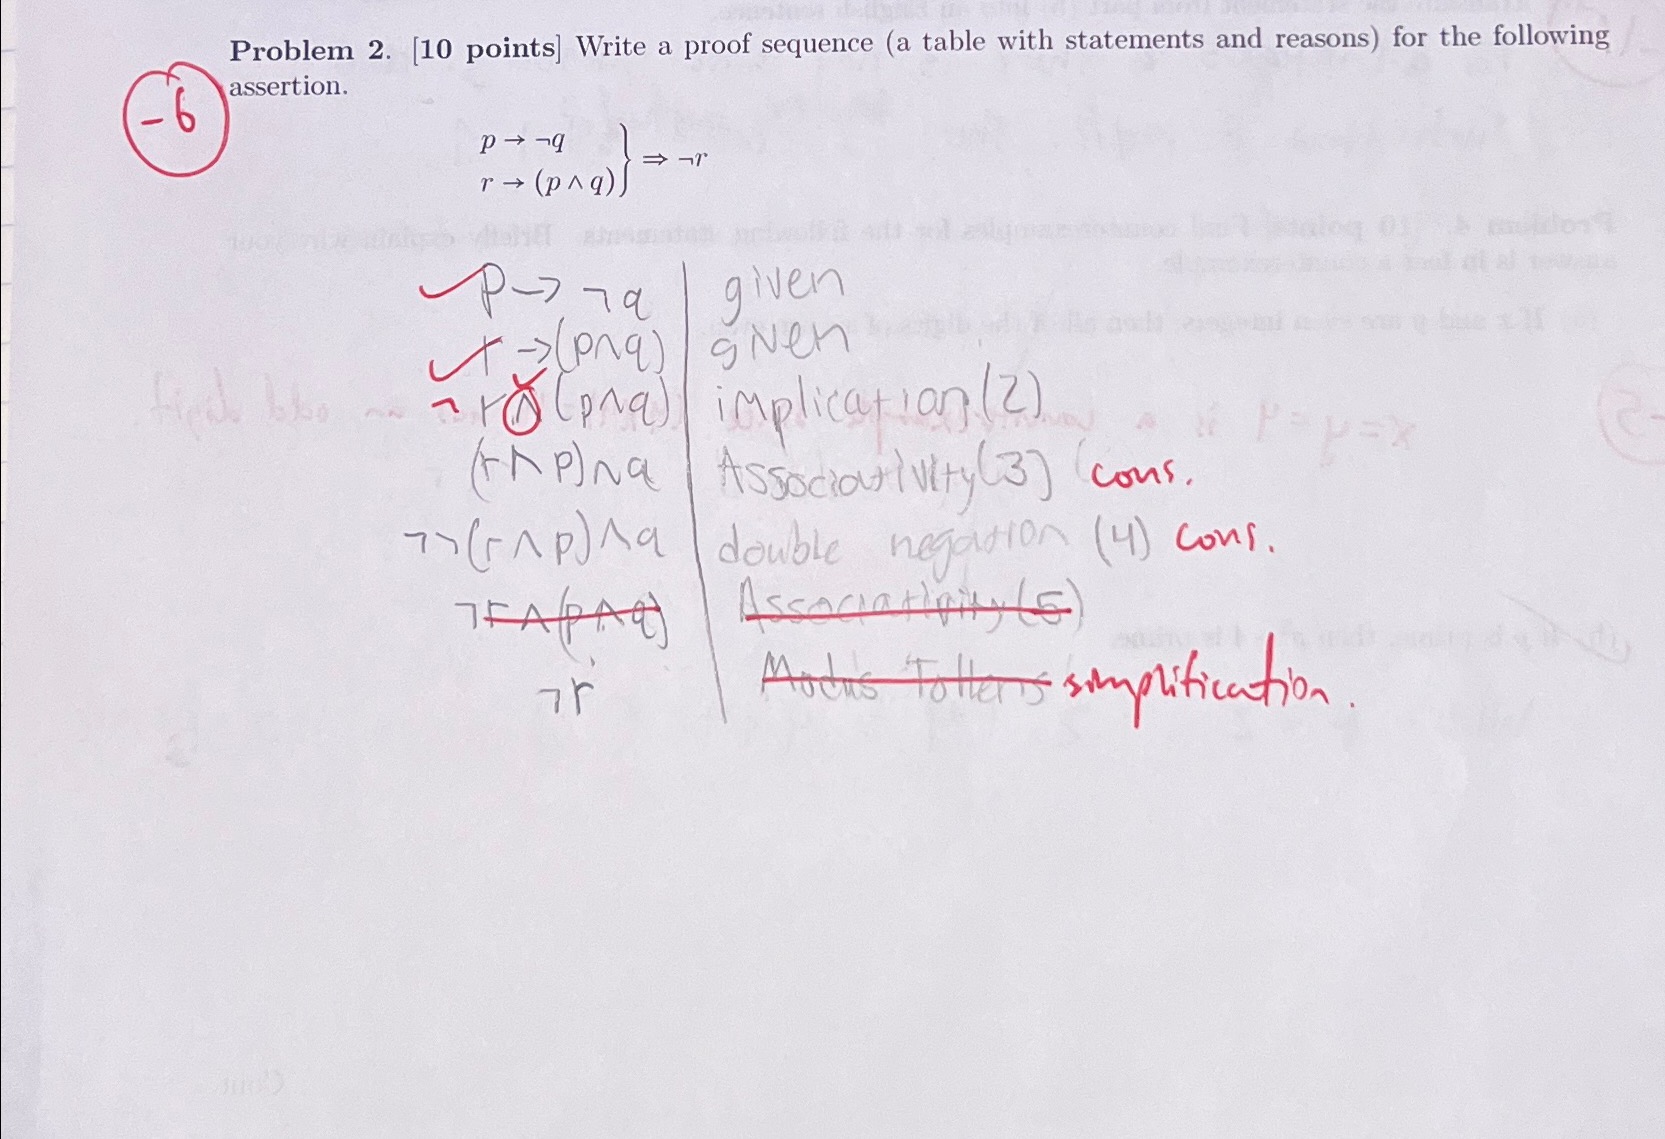 Problem 2. [10 points] Write a proof sequence (a table with statements and reasons) for the following
assertion.
-6
p → ¬q
r → (p ∧ q)
} ⇒ ¬r
p → ¬q | given
r → (p∧q) | given
¬ r ∧ (p∧q) | implication (2)
(r ∧ p) ∧ q | Associativity (3) cons.
¬¬(r ∧ p) ∧ q | double negation (4) cons.
¬r ∧ (p ∧ q) | Associativity (5)
¬r | Modus Tollens simplification.